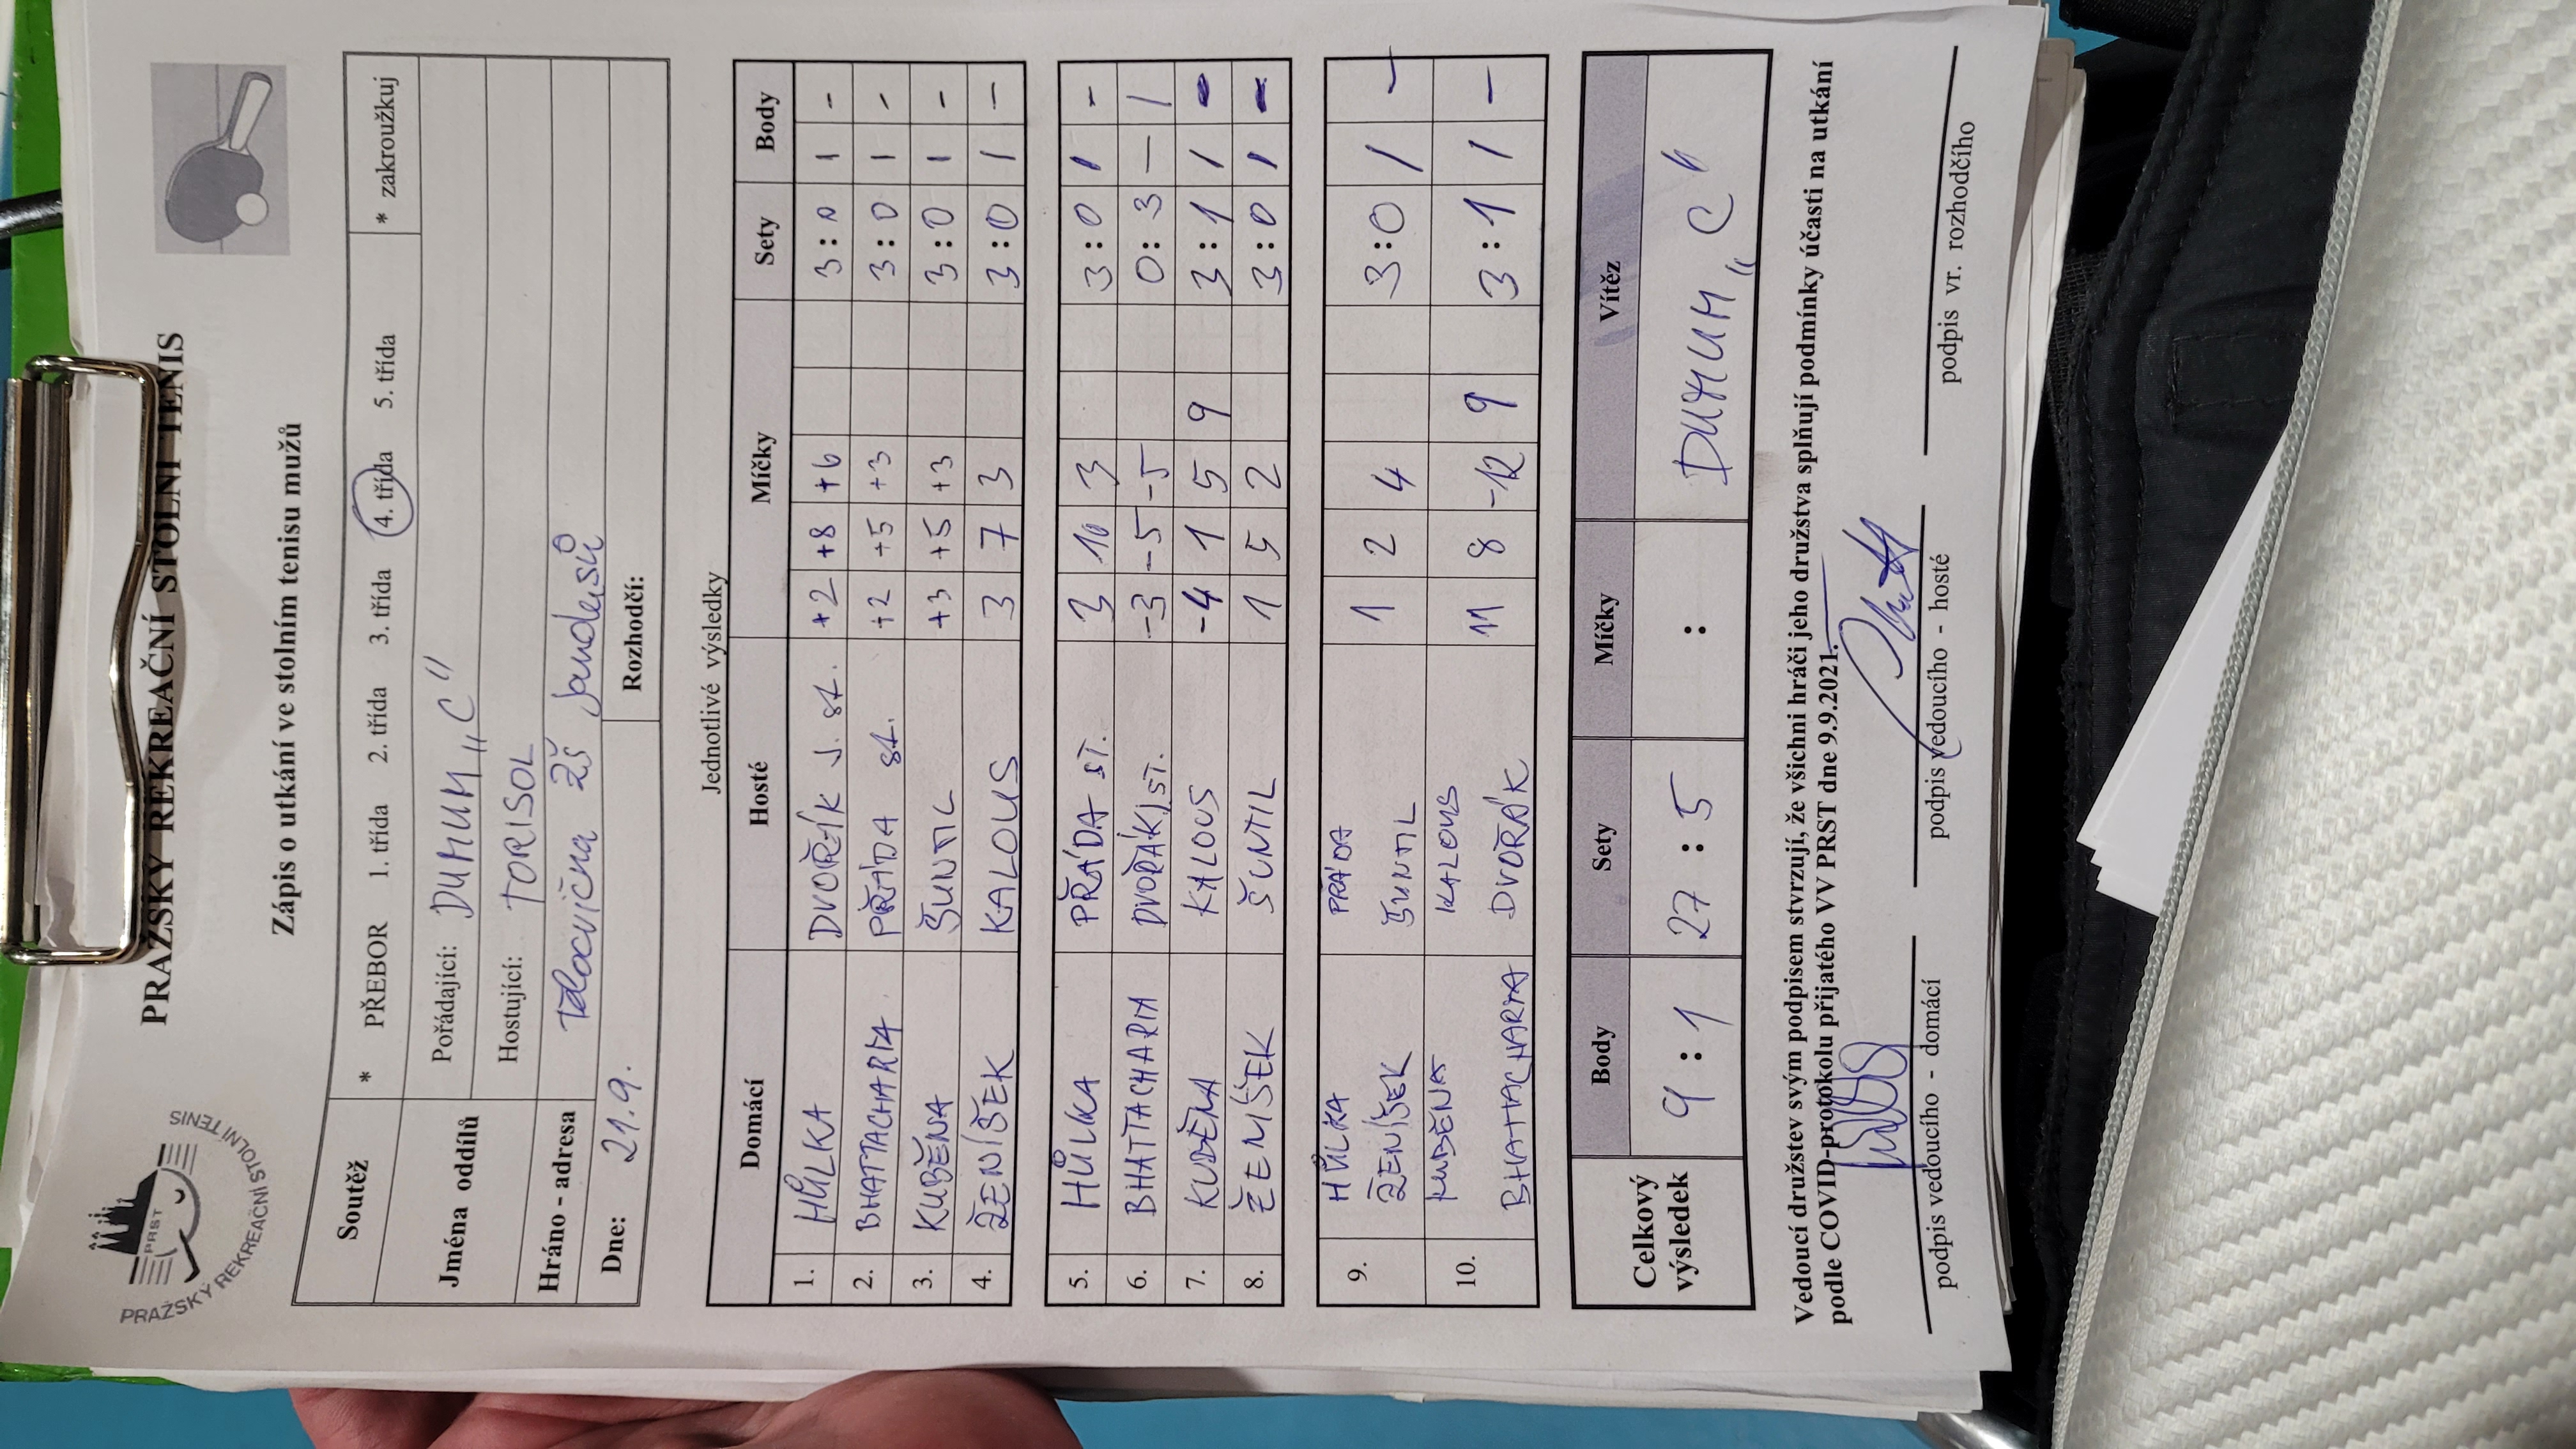 PRAŽSKÝ REKREAČNÍ STOLNÍ TENIS
PRST
PRAŽSKÝ REKREAČNÍ STOLNÍ TENIS
Zápis o utkání ve stolním tenisu mužů
Soutěž * PŘEBOR 1. třída 2. třída 3. třída 4. třída 5. třída * zakroužkuj
Jména oddílů Pořádající: DUHUH „C"
Hostující: TORISOL
Hráno - adresa Tělocvična ZŠ Jandusů
Dne: 21.9. Rozhodčí:
Jednotlivé výsledky
Domácí Hosté Míčky Sety Body
1. HŮLKA DVOŘÁK J. st. +2 +8 +6 3:0 1 -
2. BHATTACHARYA PŘÁDA st. +2 +5 +3 3:0 1 -
3. KUBĚNA ŠUNTIL +3 +5 +3 3:0 1 -
4. ŽENÍŠEK KALOUS 3 7 3 3:0 1 -
5. HŮLKA PŘÁDA ST. 3 10 3 3:0 1 -
6. BHATTACHARYA DVOŘÁK J. ST. -3 -5 -5 0:3 - 1
7. KUBĚNA KALOUS -4 1 5 9 3:1 1 -
8. ŽENÍŠEK ŠUNTIL 1 5 2 3:0 1 -
9. HŮLKA PŘÁDA
ŽENÍŠEK ŠUNTIL 1 2 4 3:0 1 -
10. KUBĚNA KALOUS
BHATTACHARYA DVOŘÁK 11 8 -12 9 3:1 1 -
Celkový výsledek Body Sety Míčky Vítěz
9 : 1 27 : 5 : DUHUH „C"
Vedoucí družstev svým podpisem stvrzují, že všichni hráči jeho družstva splňují podmínky účasti na utkání
podle COVID-protokolu přijatého VV PRST dne 9.9.2021.
podpis vedoucího - domácí podpis vedoucího - hosté podpis vr. rozhodčího